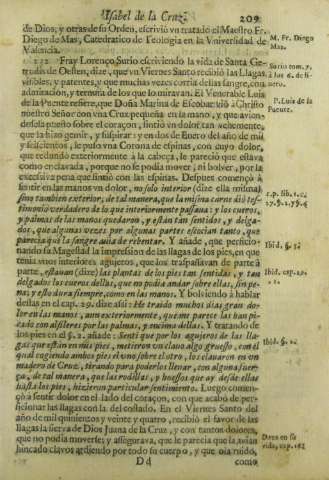 Isabel de la Cruz. 209
de Dios, y otras de su Orden, escrivió vn tratado el Maestro Fr.
Diego de Mas, Catedratico de Teologia en la Vniversidad de
Valencia.
M. Fr. Diego
Mas.
172 Fray Lorenço Surio escriviendo la vida de Santa Ge-
trudis de Oesten, dize, que vn Viernes Santo recibió las Llagas
visibles, y patentes, y que muchas vezes corria dellas sangre, con
admiracion, y ternura de los que lo miravan. El Venerable Luis
de la Puente refiere, que Doña Marina de Escobar vió à Christo
nuestro Señor con vna Cruz pequeña en la mano, y que avien-
dosela puesto sobre el coraçon, sintió vn dolor tan vehemente,
que la hizo gemir, y suspirar: y en dos de Enero del año de mil
y seiscientos, le puso vna Corona de espinas, con cuyo dolor,
que redundó exteriormente à la cabeça, le pareció que estava
como enclavada, porque no se podia mover, ni bolver, por la
excessiva pena que sintió con las espinas. Despues començó à
sentir en las manos vn dolor, no solo interior (dize ella misma)
sino tambien exterior, de tal manera, que la misma carne dió tes-
timonio verdadero de lo que interiormente passava: y los cueros,
y palmas de las manos quedaron, y están tan sentidos, y delga-
dos, que algunas vezes por algunas partes escocian tanto, que
parecia que la sangre avia de rebentar. Y añade, que perficio-
nando su Magestad la impression de las llagas de los pies, en que
tenia vnos interiores agujeros, que los traspassavan de parte à
parte, estavan (dize) las plantas de los pies tan sentidas, y tan
delgados los cueros dellas, que no podia andar sobre ellas, sin pe-
na; y esto dura siempre, como en las manos. Y bolviendo à hablar
destas en el cap. 29. dize assi: He traido muchos dias gran do-
lor en las manos, aun exteriormente, que me parece las han pi-
cado con alfileres por las palmas, y encima dellas. Y tratando de
los pies en el §. 2. añade: Sentí que por los agujeros de las lla-
gas que están en mis pies, metieron vn clavo algo gruesso, con el
qual cogiendo ambos pies el vno sobre el otro, los clavaron en vn
madero de Cruz, tirando para poderlos llenar, con alguna fuer-
ça, de tal manera, que las rodillas, y huessos que ay desde ellas
hasta los pies, hizieron particular sentimiento. Luego comen-
çó à sentir dolor en el lado del coraçon, con que acabó de per-
ficionar las llagas con la del costado. En el Viernes Santo del
año de mil quinientos y veinte y quatro, recibió el favor de las
llagas la sierva de Dios Juana de la Cruz, y con tantos dolores,
que no podia moverse; y assegurava, que le parecia que la avian
hincado clavos ardiendo por todo su cuerpo, y que oia ruido,
Surio tom. 7.
P. Luis de la
Puente.
Ibid. §. 2.
Daza en su
Dd como